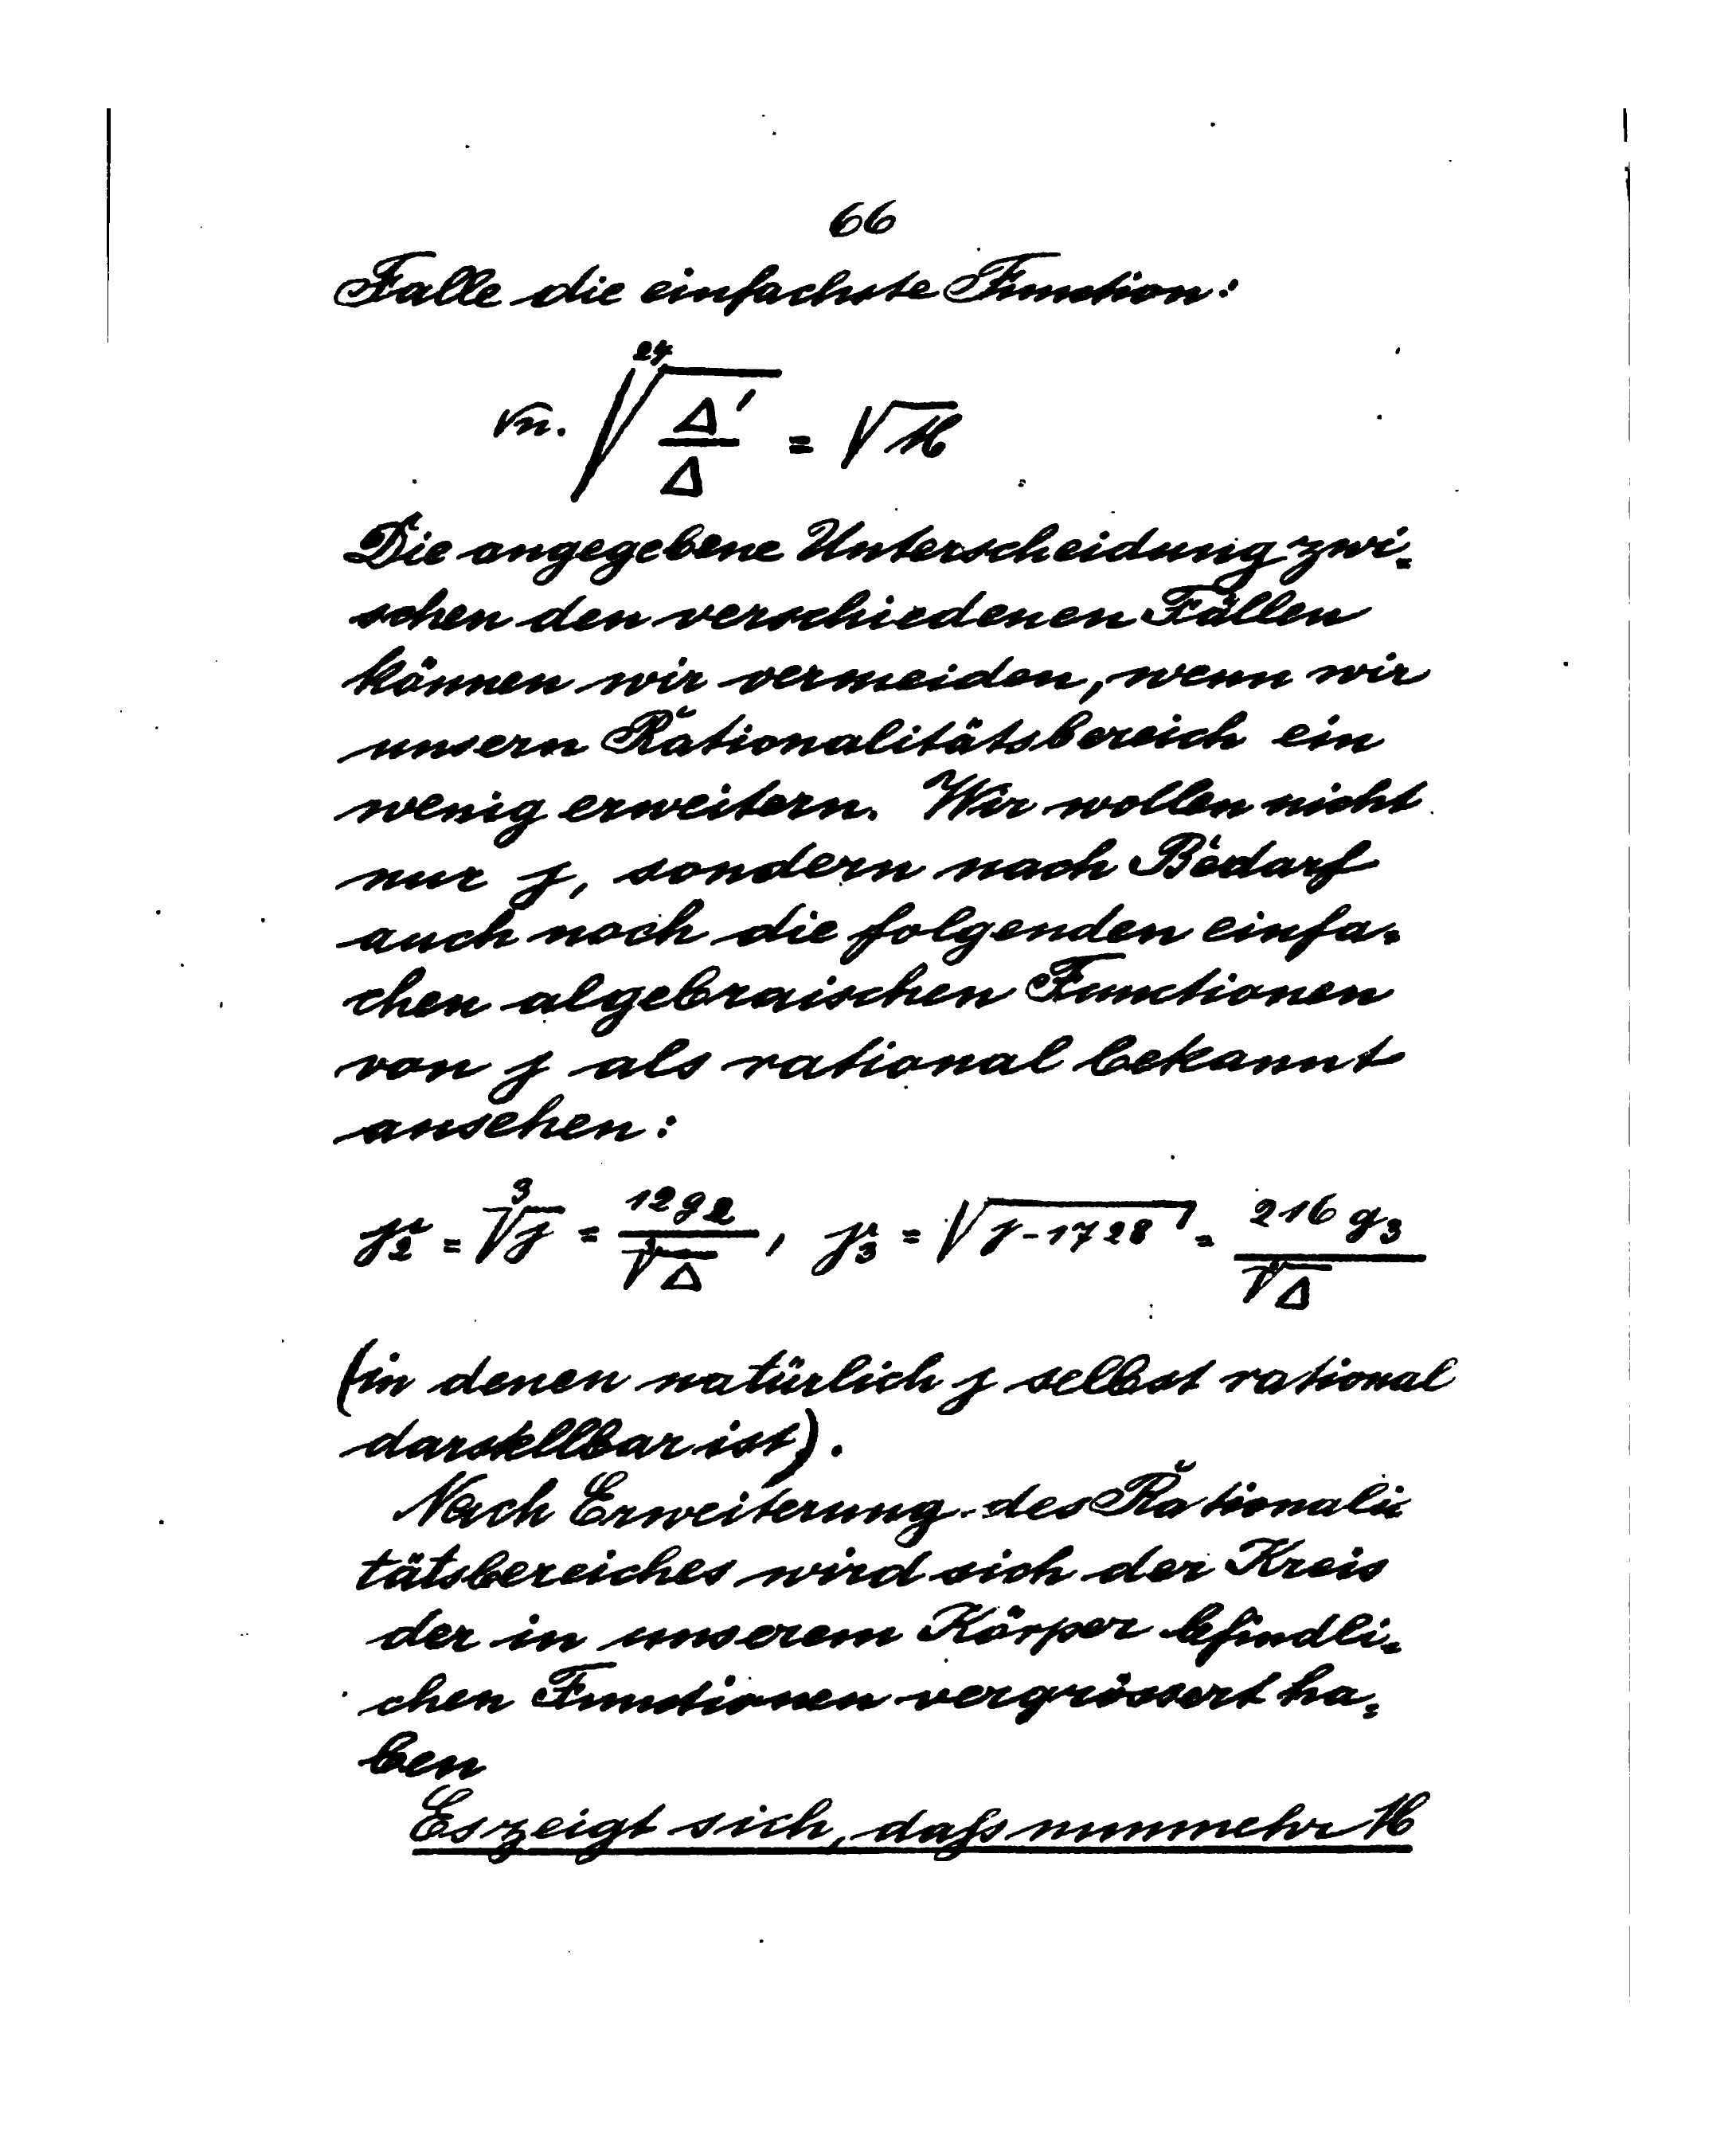 66
Falle die einfachste Function:
√n. \sqrt[24]{\frac{Δ'}{Δ}} = √M
Die angegebene Unterscheidung zwi-
schen den verschiedenen Fällen
können wir vermeiden, wenn wir
unsern Rationalitätsbereich ein
wenig erweitern. Wir wollen nicht
nur j, sondern nach Bedarf
auch noch die folgenden einfa-
chen algebraischen Functionen
von j als rational bekannt
ansehen:
j_2 = \sqrt[3]{j} = \frac{12g_2}{\sqrt[3]{Δ}}, j_3 = \sqrt{j-1728} = \frac{216 g_3}{\sqrt{Δ}}
(in denen natürlich j selbst rational
darstellbar ist).
Nach Erweiterung des Rationali-
tätsbereiches wird sich der Kreis
der in unserem Körper befindli-
chen Functionen vergrössert ha-
ben
Es zeigt sich, daß nunmehr M